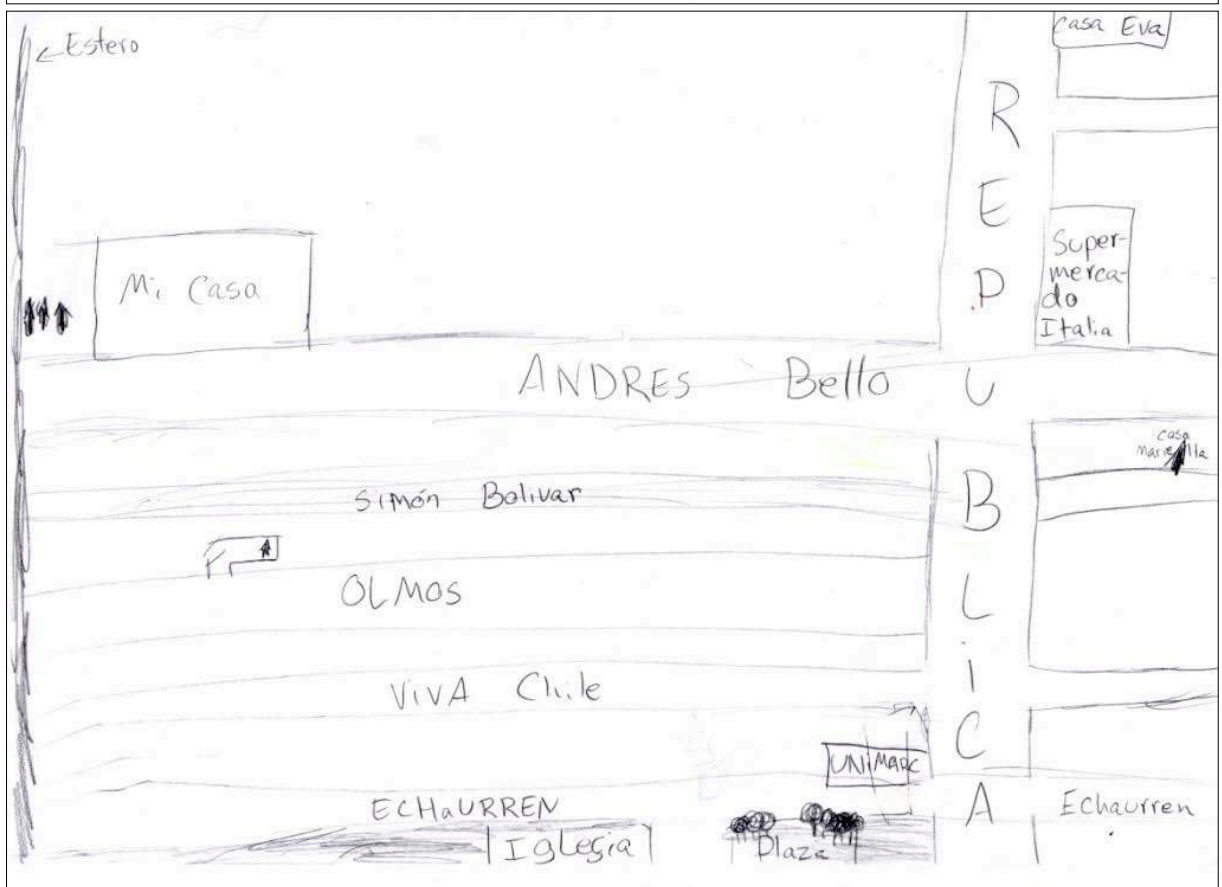 ←Estero
Casa Eva
REPUBLiCA
Super-
merca-
do
Italia
Mi Casa
ANDRES Bello
casa
marie lla
Simón Bolivar
OLMOS
ViVA Chile
UNiMARC
ECHaURREN
Echaurren
Iglesia
Plaza